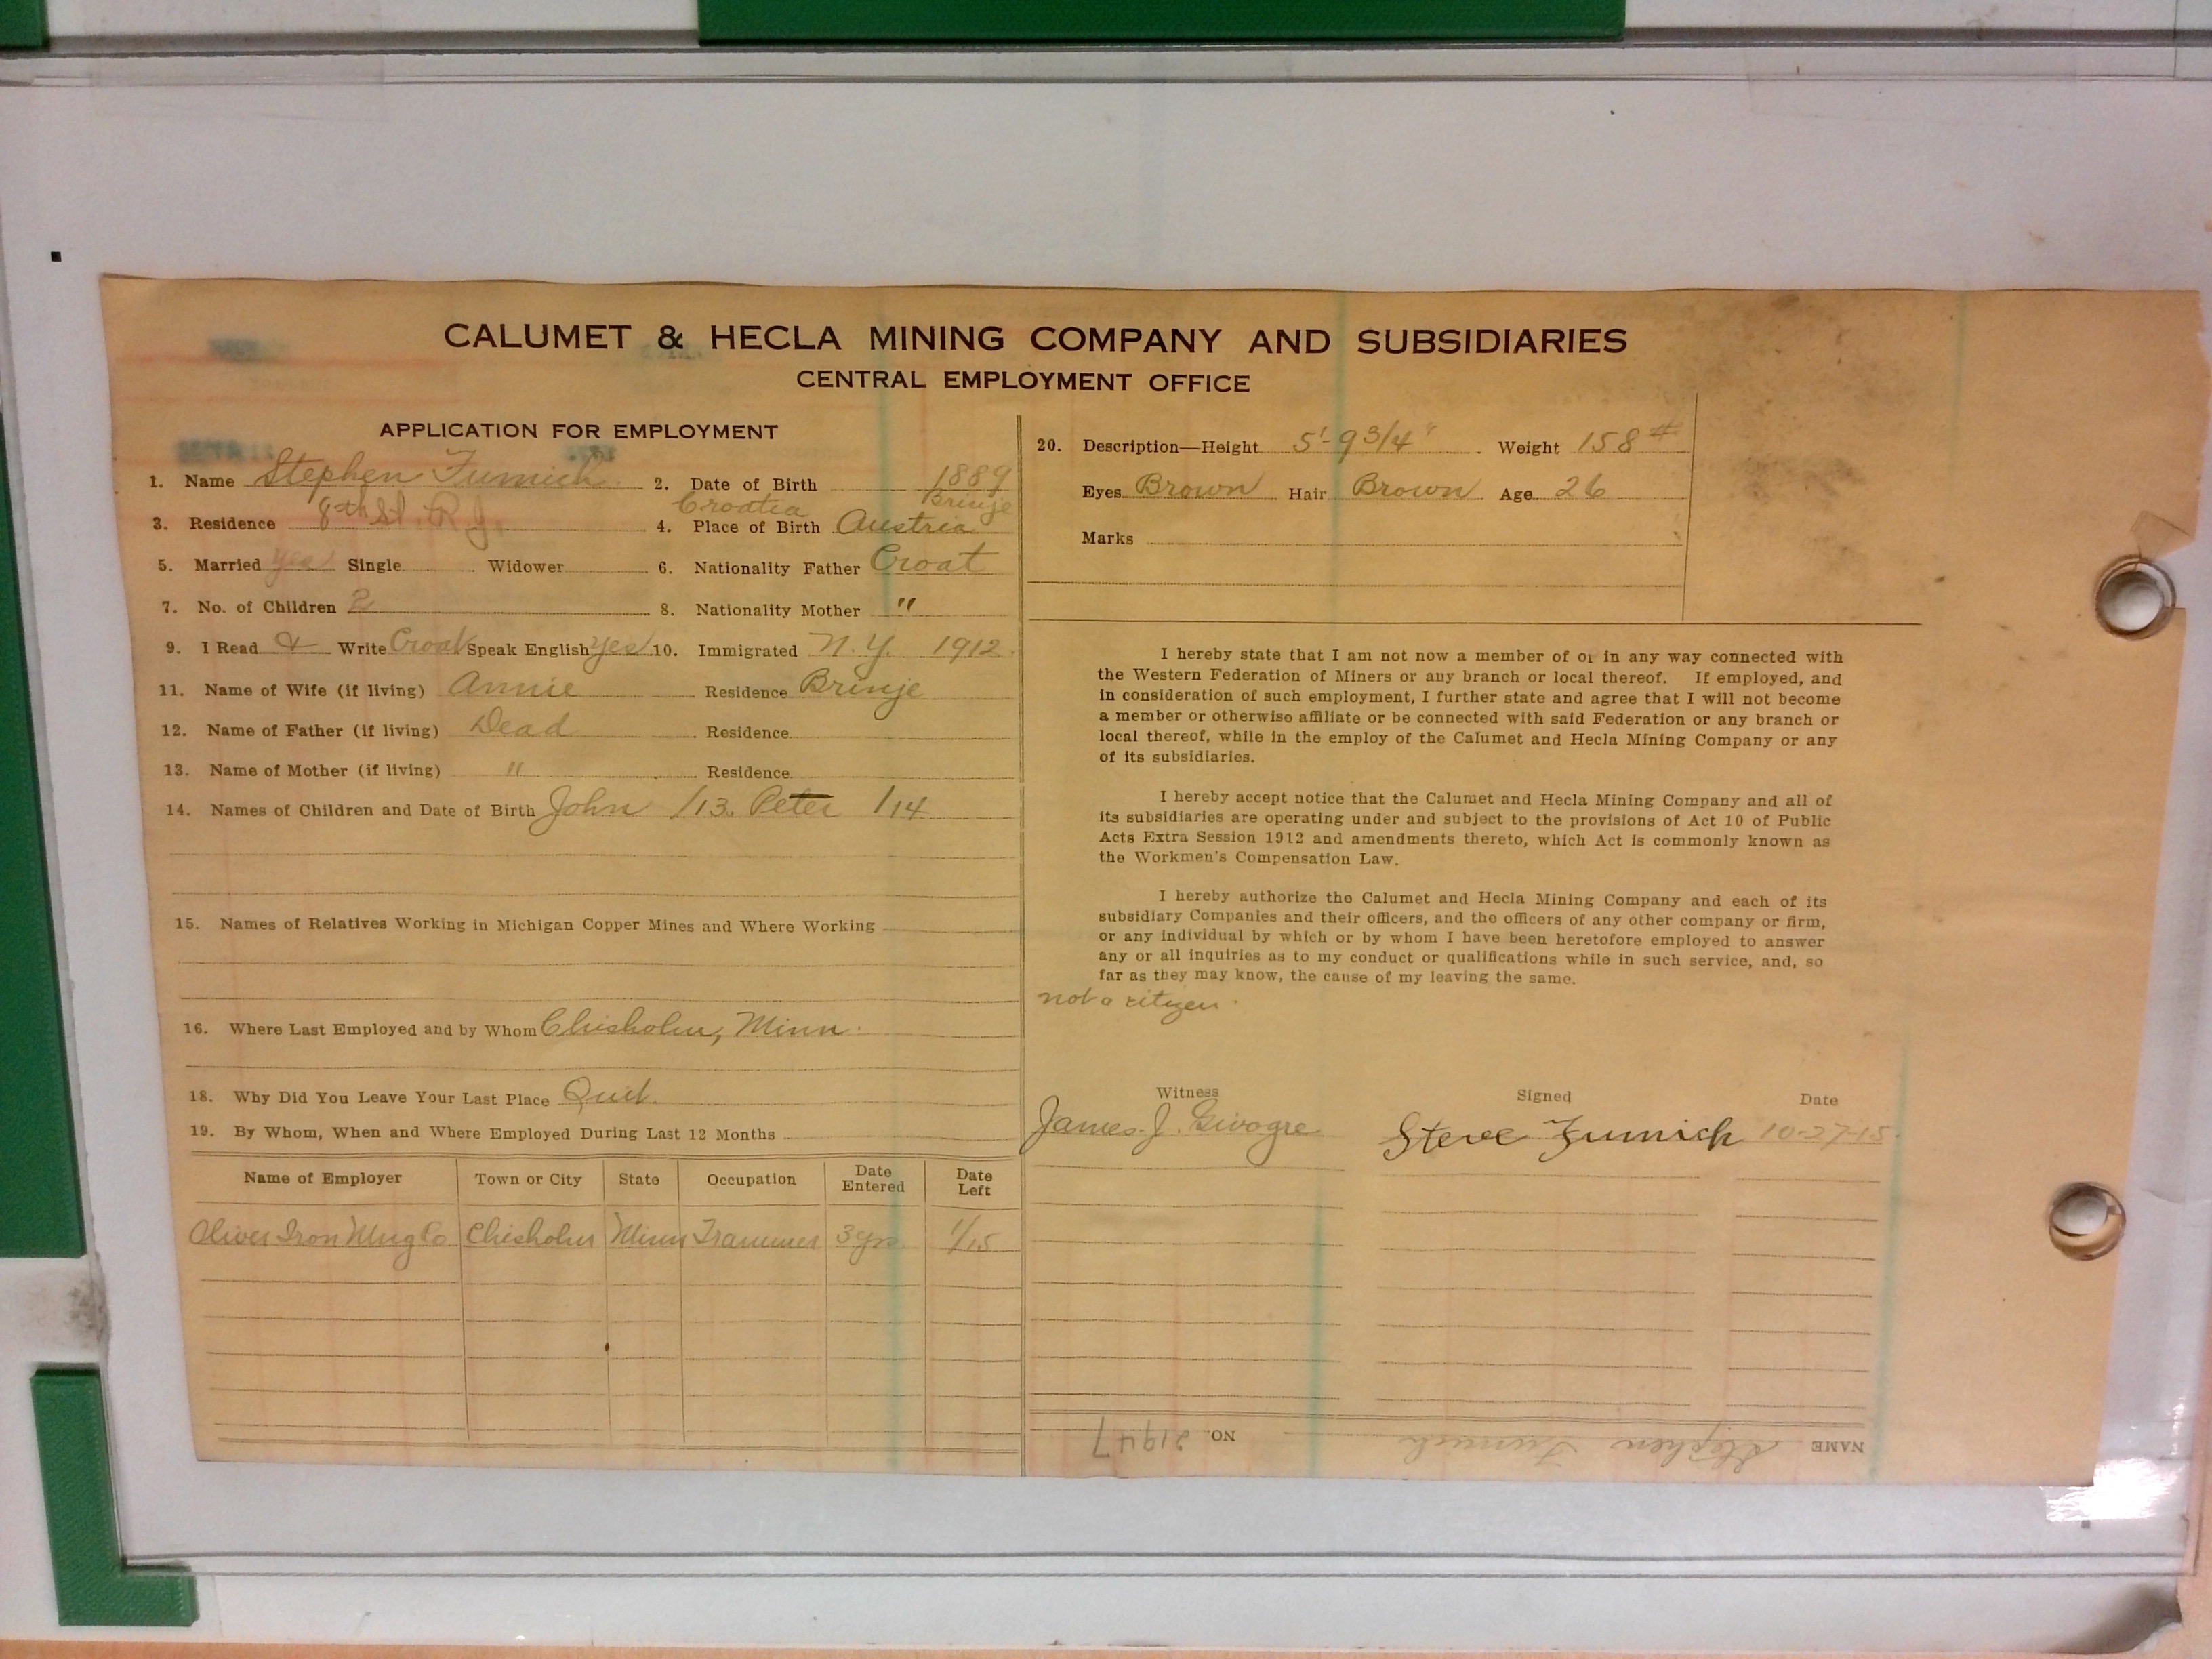 CALUMET & HECLA MINING COMPANY AND SUBSIDIARIES
CENTRAL EMPLOYMENT OFFICE
APPLICATION FOR EMPLOYMENT
1. Name Stephen Fumich 2. Date of Birth 1889
3. Residence 8th St. R.J. 4. Place of Birth Croatia Brinje Austria
5. Married yes Single Widower 6. Nationality Father Croat
7. No. of Children 2 8. Nationality Mother "
9. I Read & Write Croat Speak English yes 10. Immigrated N.Y. 1912
11. Name of Wife (if living) Annie Residence Brinje
12. Name of Father (if living) Dead Residence
13. Name of Mother (if living) " Residence
14. Names of Children and Date of Birth John /13. Peter /14
15. Names of Relatives Working in Michigan Copper Mines and Where Working
16. Where Last Employed and by Whom Chisholm, Minn.
18. Why Did You Leave Your Last Place Quit.
19. By Whom, When and Where Employed During Last 12 Months
Name of Employer Town or City State Occupation Date Entered Date Left
Oliver Iron Mng Co Chisholm Minn Trammer 3 yrs. 1/15
20. Description—Height 5'-9 3/4" Weight 158#
Eyes Brown Hair Brown Age 26
Marks
I hereby state that I am not now a member of or in any way connected with
the Western Federation of Miners or any branch or local thereof. If employed, and
in consideration of such employment, I further state and agree that I will not become
a member or otherwise affiliate or be connected with said Federation or any branch or
local thereof, while in the employ of the Calumet and Hecla Mining Company or any
of its subsidiaries.
I hereby accept notice that the Calumet and Hecla Mining Company and all of
its subsidiaries are operating under and subject to the provisions of Act 10 of Public
Acts Extra Session 1912 and amendments thereto, which Act is commonly known as
the Workmen's Compensation Law.
I hereby authorize the Calumet and Hecla Mining Company and each of its
subsidiary Companies and their officers, and the officers of any other company or firm,
or any individual by which or by whom I have been heretofore employed to answer
any or all inquiries as to my conduct or qualifications while in such service, and, so
far as they may know, the cause of my leaving the same.
not a citizen.
Witness Signed Date
James J. Steve Fumich 10-27-15.
NAME Stephen Fumich NO. 21947